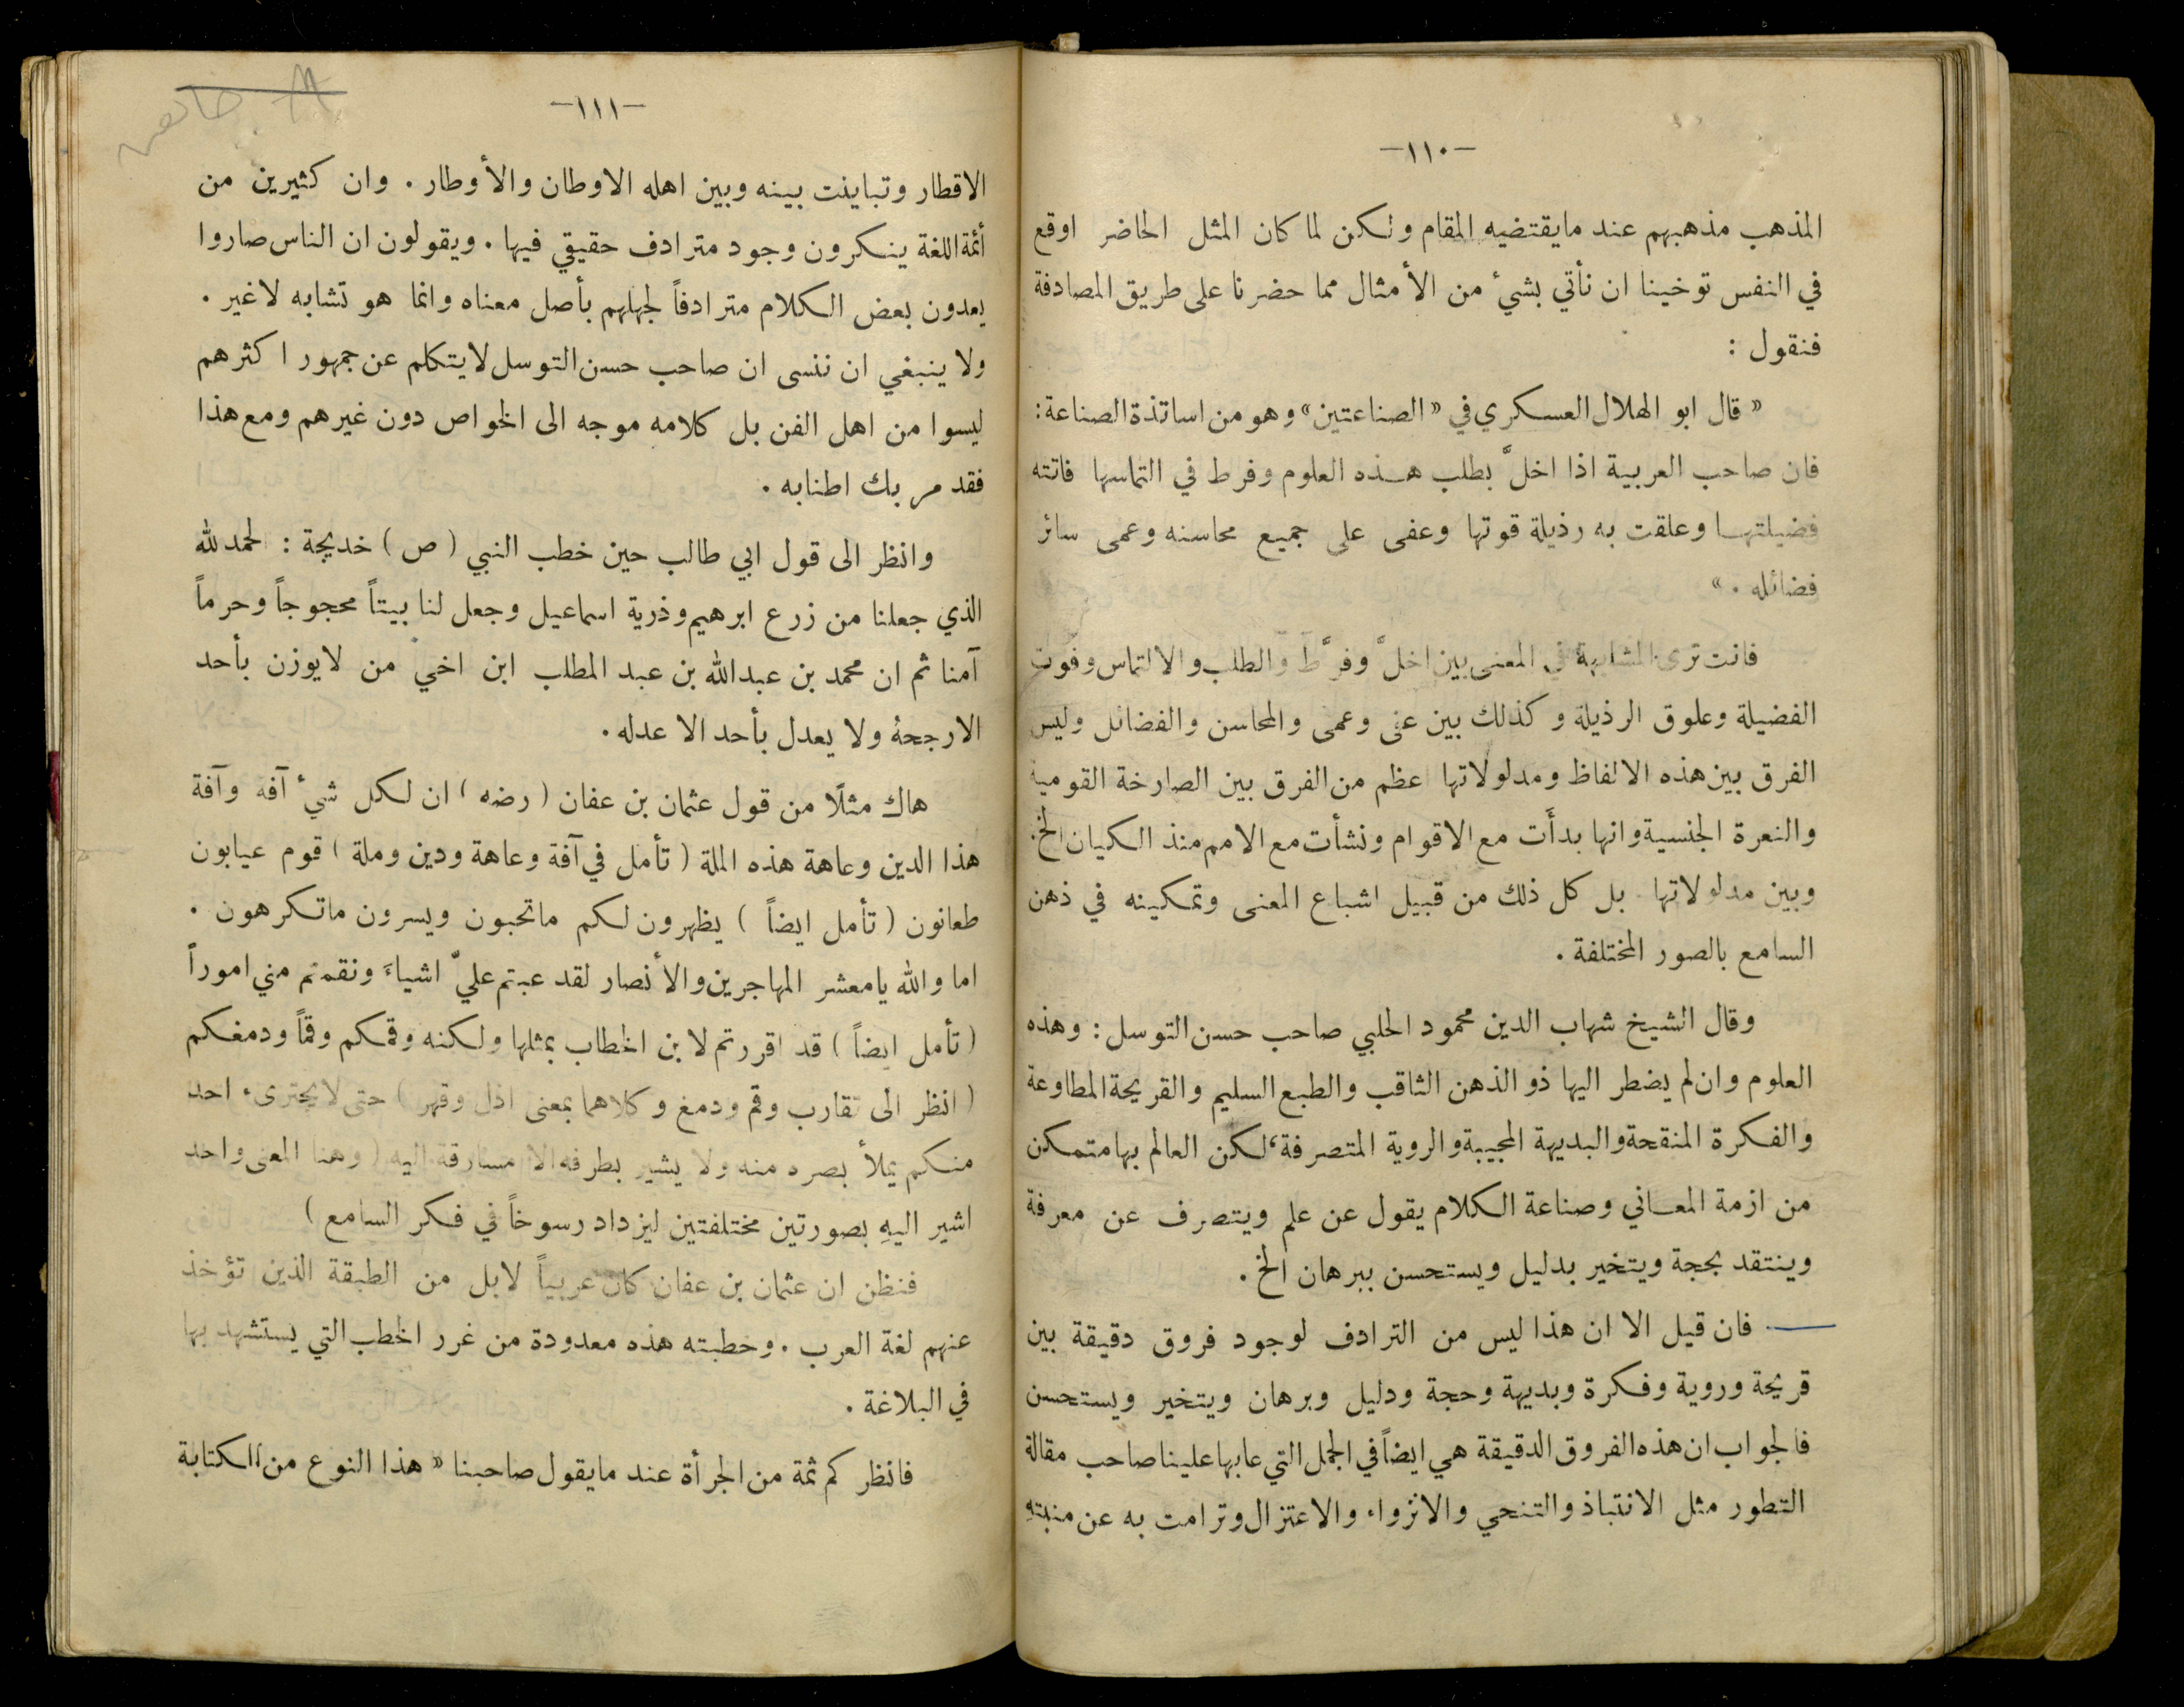 —١١٠—
المذهب مذهبهم عند مايقتضيه المقام ولكن لما كان المثل الحاضر اوقع
في النفس توخينا ان نأتي بشئ من الأمثال مما حضرنا على طريق المصادفة
فنقول :
« قال ابو الهلال العسكري في «الصناعتين» وهو من اساتذة الصناعة:
فان صاحب العربية اذا اخلَّ بطلب هذه العلوم وفرط في التماسها فاتته
فضيلتها وعلقت به رذيلة قوتها وعفى على جميع محاسنه وعمى سائر
فضائله . »
فانت ترى المشابهة في المعنى بين اخلَّ وفرَّط والطلب والالتماس وفوت
الفضيلة وعلوق الرذيلة وكذلك بين عفى وعمى والمحاسن والفضائل وليس
الفرق بين هذه الالفاظ ومدلولاتها اعظم من الفرق بين الصارخة القومية
والنعرة الجنسية وانها بدأَت مع الاقوام ونشأت مع الامم منذ الكيان الخ.
وبين مدلولاتها بل كل ذلك من قبيل اشباع المعنى وتمكينه في ذهن
السامع بالصور المختلفة .
وقال الشيخ شهاب الدين محمود الحلبي صاحب حسن التوسل : وهذه
العلوم وان لم يضطر اليها ذو الذهن الثاقب والطبع السليم والقريحة المطاوعة
والفكرة المنقحة والبديهة المجيبة والروية المتصرفة، لكن العالم بها متمكن
من ازمة المعاني وصناعة الكلام يقول عن علم ويتصرف عن معرفة
وينتقد بحجة ويتخير بدليل ويستحسن ببرهان الخ .
فان قيل الا ان هذا ليس من الترادف لوجود فروق دقيقة بين
قريحة وروية وفكرة وبديهة وحجة ودليل وبرهان ويتخير ويستحسن
فالجواب ان هذه الفروق الدقيقة هي ايضاً في الجمل التي عابها علينا صاحب مقالة
التطور مثل الانتباذ والتنحي والانزواء والاعتزال وترامت به عن منبتهِ
—١١١—
الاقطار وتباينت بينه وبين اهله الاوطان والأوطار . وان كثيرين من
أئمة اللغة ينكرون وجود مترادف حقيقي فيها . ويقولون ان الناس صاروا
يعدون بعض الكلام مترادفاً لجهلهم بأصل معناه وانما هو تشابه لاغير .
ولا ينبغي ان ننسى ان صاحب حسن التوسل لايتكلم عن جمهور اكثرهم
ليسوا من اهل الفن بل كلامه موجه الى الخواص دون غيرهم ومع هذا
فقد مر بك اطنابه .
وانظر الى قول ابي طالب حين خطب النبي ( ص ) خديجة : الحمد لله
الذي جعلنا من زرع ابرهيم وذرية اسماعيل وجعل لنا بيتاً محجوجاً وحرماً
آمنا ثم ان محمد بن عبدالله بن عبد المطلب ابن اخي من لايوزن بأحد
الا رجحهُ ولا يعدل بأحد الا عدله .
هاك مثلًا من قول عثمان بن عفان ( رضه ) ان لكل شئ آفه وآفة
هذا الدين وعاهة هذه الملة ( تأمل في آفة وعاهة ودين وملة ) قوم عيابون
طعانون ( تأمل ايضاً ) يظهرون لكم ماتحبون ويسرون ماتكرهون .
اما والله يامعشر المهاجرين والأنصار لقد عبتم عليّ اشياءَ ونقمتم مني اموراً
( تأمل ايضاً ) قد اقررتم لابن الخطاب بمثلها ولكنه وقمكم وقماً ودمغكم
( انظر الى تقارب وقم ودمغ وكلاهما بمعنى اذل وقهر ) حتى لايجترىء احد
منكم يملأ بصره منه ولا يشير بطرفه الا مسارقة اليه ( وهنا المعنى واحد
اشير اليهِ بصورتين مختلفتين ليزداد رسوخاً في فكر السامع )
فنظن ان عثمان بن عفان كان عربياً لابل من الطبقة الذين تؤخذ
عنهم لغة العرب . وخطبته هذه معدودة من غرر الخطب التي يستشهد بها
في البلاغة .
فانظر كم ثمة من الجرأة عند مايقول صاحبنا « هذا النوع من الكتابة